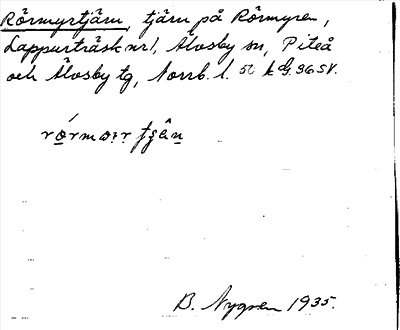 Rörmyrtjärn, tjärn på Rörmyren,
Lappurträsk nr 1, Älvsby sn, Piteå
och Älvsby tg, Norrb. l. 50 k d. 36 SV.
B. Nygren 1935.